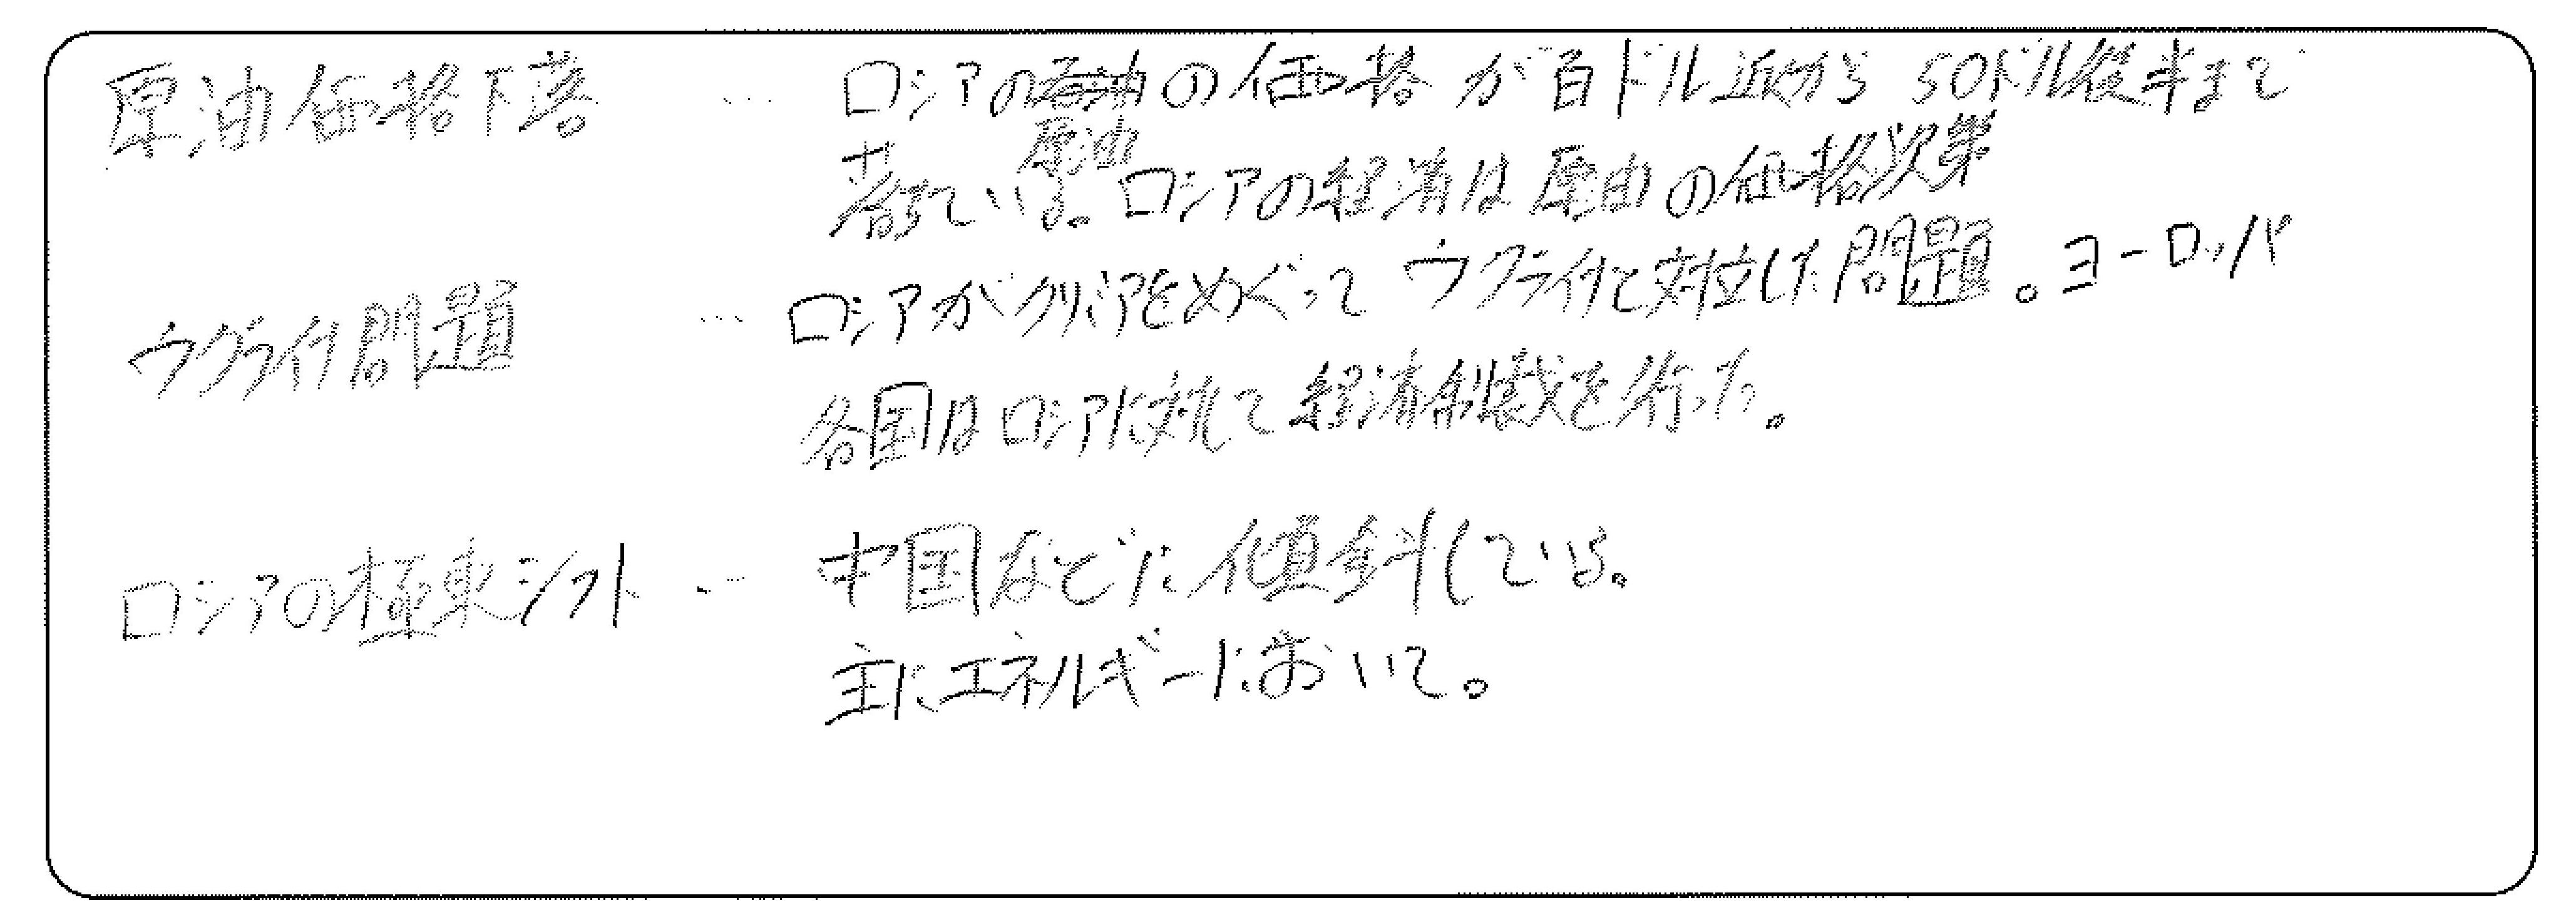 原油価格下落 … ロシアの原油の価格が百ドル近から50ドル後半まで
落ちている。ロシアの経済は原油の価格次第
ウクライナ問題 … ロシアがクリミアをめぐってウクライナと対立した問題。ヨーロッパ
各国はロシアに対して経済制裁を行った。
ロシアの極東シフト … 中国などに傾斜している。
主にエネルギーにおいて。